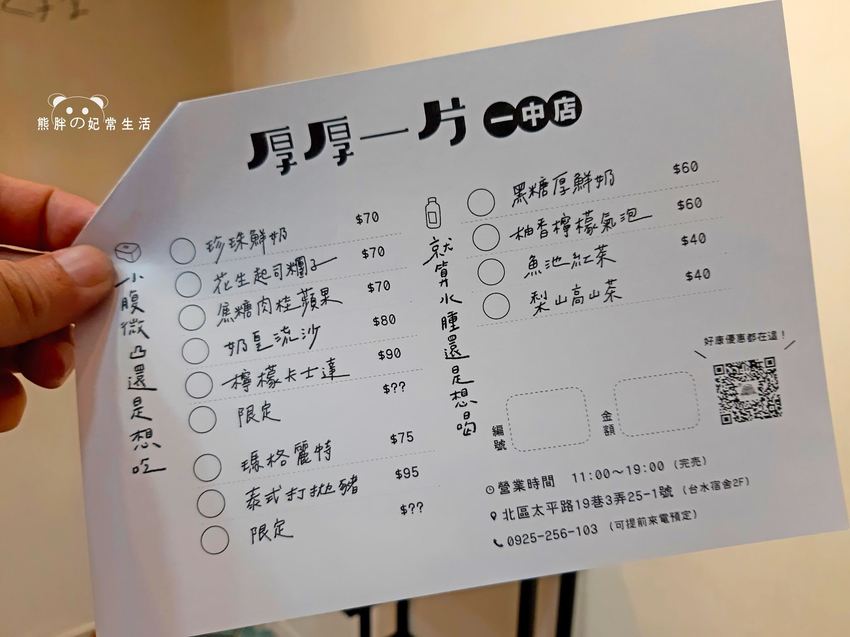 熊胖の妃常生活
厚厚一片 一中店
小腹微凸還是想吃
珍珠鮮奶 $70
花生起司糰子 $70
焦糖肉桂蘋果 $70
奶皇流沙 $80
檸檬卡士達 $90
限定 $??
瑪格麗特 $75
泰式打拋豬 $95
限定 $??
就算水腫還是想喝
黑糖厚鮮奶 $60
柚香檸檬氣泡 $60
魚池紅茶 $40
梨山高山茶 $40
好康優惠都在這！
編號
金額
營業時間 11:00～19:00（完売）
北區太平路19巷3弄25-1號（台水宿舍2F）
0925-256-103（可提前來電預定）